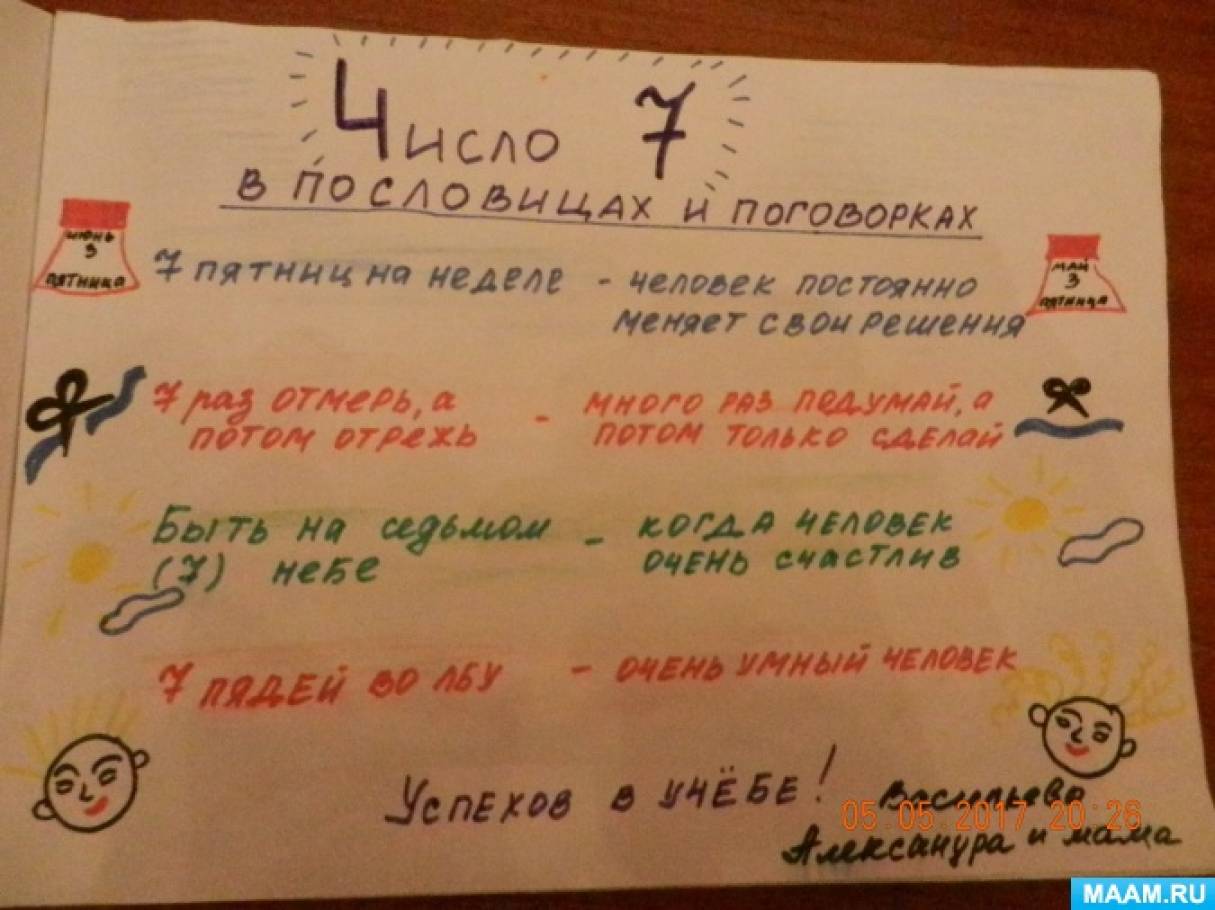 Число 7
в пословицах и поговорках
июнь
3
пятница
7 пятниц на неделе - человек постоянно
меняет свои решения
май
3
пятница
7 раз отмерь, а - много раз подумай, а
потом отрежь потом только сделай
Быть на седьмом - когда человек
(7) небе очень счастлив
7 пядей во лбу - очень умный человек
Успехов в учёбе!
Васильева
Александра и мама
05.05.2017 20:26
MAAM.RU